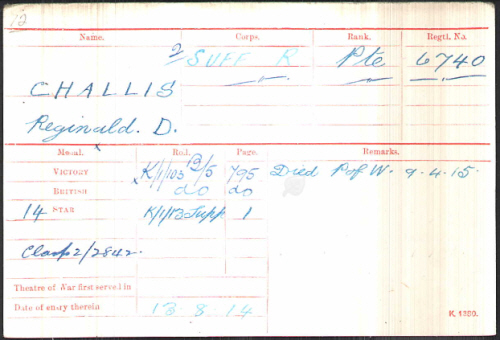 12
Name. Corps. Rank. Regtl. No.
2 SUFF R Pte 6740
CHALLIS
Reginald. D.
Medal. Roll. Page. Remarks.
VICTORY K/1/103 B/5 795 Died P of W. 9.4.15.
BRITISH do do
14 STAR K/1/13 Supp 1
Clasp 2/2842.
Theatre of War first served in
Date of entry therein 13.8.14
K. 1380.